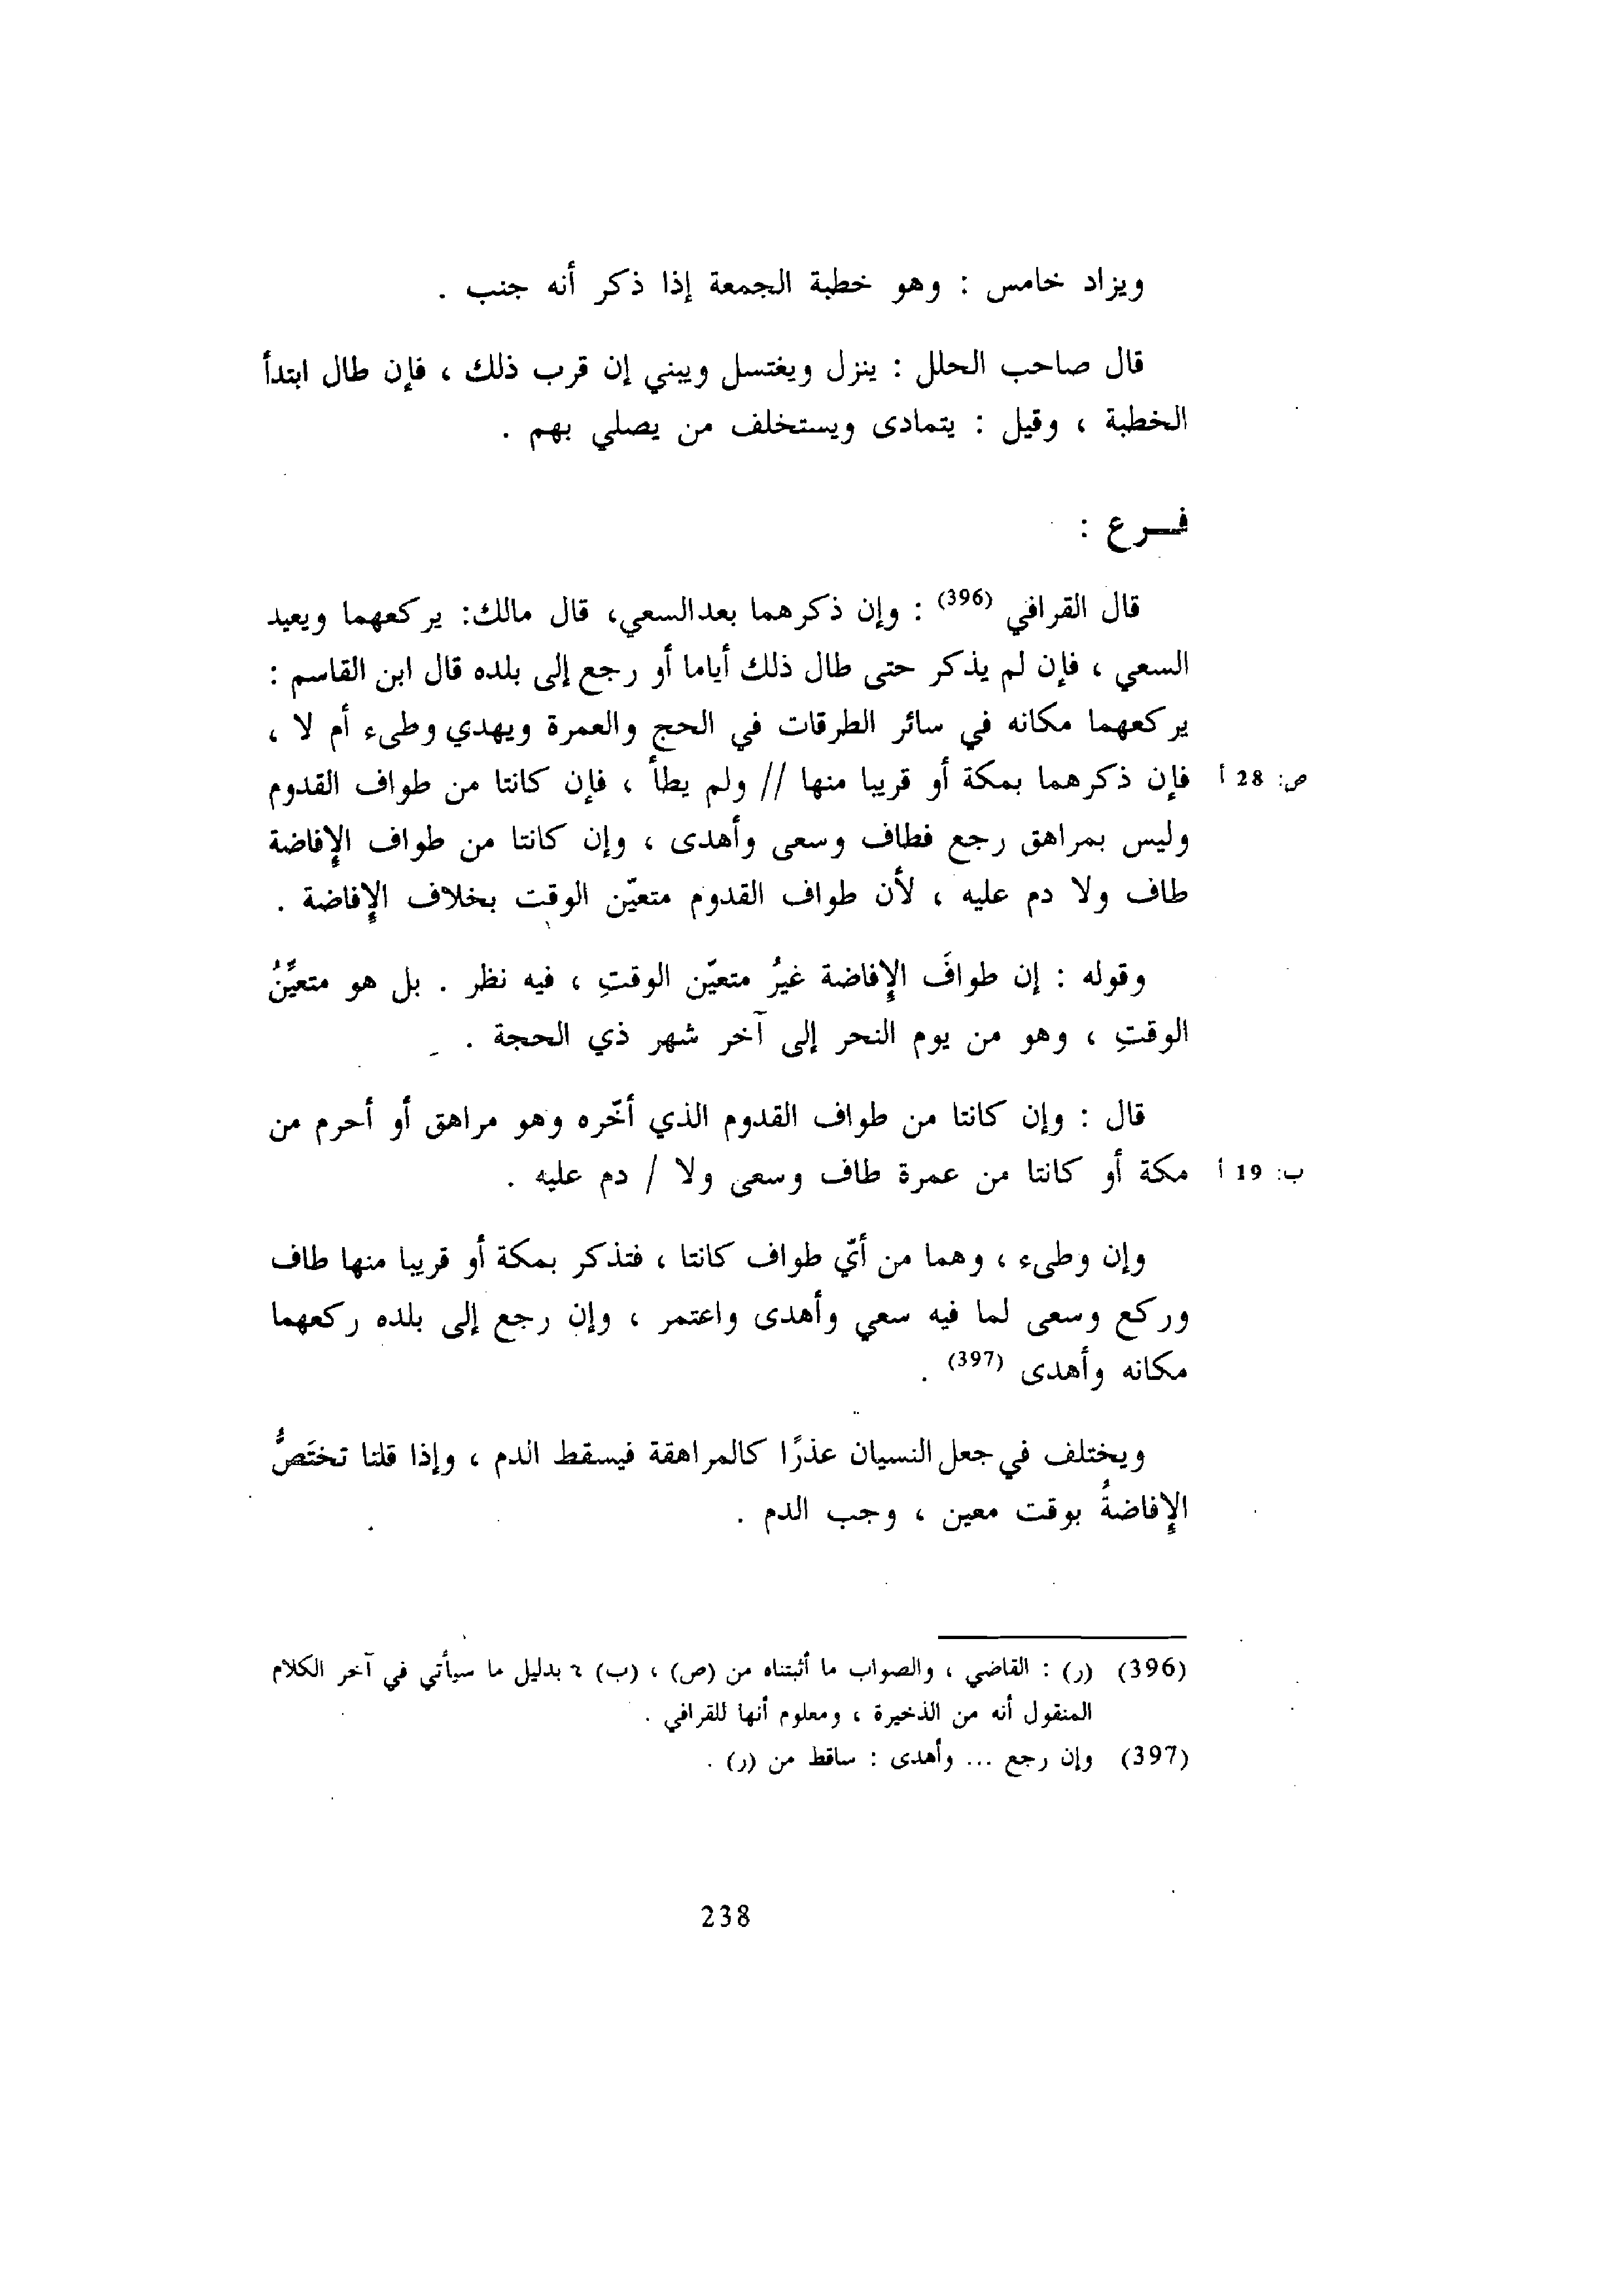 ويزاد خامس : وهو خطبة الجمعة إذا ذكر أنه جنب .
قال صاحب الحلل : ينزل ويغتسل ويبني إن قرب ذلك ، فإن طال ابتدأ
الخطبة ، وقيل : يتمادى ويستخلف من يصلي بهم .
فــرع :
قال القرافي (396) : وإن ذكرهما بعدالسعي، قال مالك: يركعهما ويعيد
السعي ، فإن لم يذكر حتى طال ذلك أياما أو رجع إلى بلده قال ابن القاسم :
يركعهما مكانه في سائر الطرقات في الحج والعمرة ويهدي وطىء أم لا ،
ص: 28 أ فإن ذكرهما بمكة أو قريبا منها // ولم يطأ ، فإن كانتا من طواف القدوم
وليس بمراهق رجع فطاف وسعى وأهدى ، وإن كانتا من طواف الإفاضة
طاف ولا دم عليه ، لأن طواف القدوم متعيّن الوقت بخلاف الإفاضة .
وقوله : إن طوافَ الإفاضة غيرُ متعيّن الوقتِ ، فيه نظر . بل هو متعيَّنُ
الوقتِ ، وهو من يوم النحر إلى آخر شهر ذي الحجة .
قال : وإن كانتا من طواف القدوم الذي أخّره وهو مراهق أو أحرم من
ب: 19 أ مكة أو كانتا من عمرة طاف وسعى ولا / دم عليه .
وإن وطىء ، وهما من أيّ طواف كانتا ، فتذكر بمكة أو قريبا منها طاف
وركع وسعى لما فيه سعي وأهدى واعتمر ، وإن رجع إلى بلده ركعهما
مكانه وأهدى (397) .
ويختلف في جعل النسيان عذرًا كالمراهقة فيسقط الدم ، وإذا قلنا تختَصُّ
الإفاضةُ بوقت معين ، وجب الدم .
(396) (ر) : القاضي ، والصواب ما أثبتناه من (ص) ، (ب) ، بدليل ما سيأتي في آخر الكلام
المنقول أنه من الذخيرة ، ومعلوم أنها للقرافي .
(397) وإن رجع ... وأهدى : ساقط من (ر) .
238